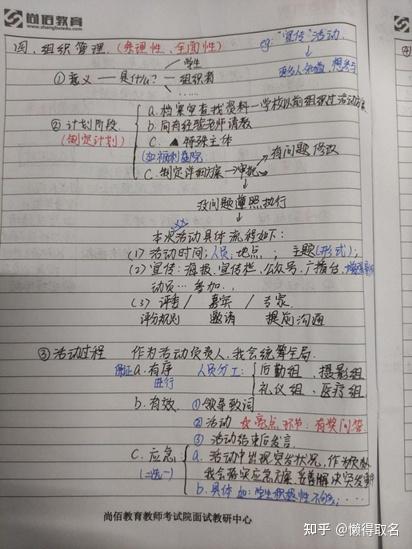 尚佰教育
www.shangbaiedu.com
四、组织管理 (条理性、全面性) eg:“宣传”活动.
学生
① 意义 — 具什么? — 组织者
更多人知道,想参与
a. 档案审查找资料—学校以前组织过活动
② 计划阶段 b. 向有经验老师请教
(制定计划) c. ▲特殊主体
(如福利院)
C. 制定详细方案—审批 有问题修改
没问题遵照执行
本次xx活动具体流程如下:
(1) 活动时间;人员;地点;主题(形式);
(2) 宣传:海报、宣传栏、公众号、广播台、
动员…参加..
(3) 评委 / 嘉宾 / 专家
评分规则 邀请 提前沟通
③ 活动过程 作为活动负责人,我会统筹全局.
保证 a. 有序进行 人员分工: 后勤组、摄影组
礼仪组、医疗组
b. 有效. ① 领导致词
② 活动 亮点环节:有奖问答
③ 活动结束后发言.
C. 应急 a. 活动中出现突发状况,作为
(二选一) 我会落实应急方案,妥善解决突发事件
b. 具体 如:学生积极性不高;…
尚佰教育教师考试院面试教研中心
知乎 @懒得取名